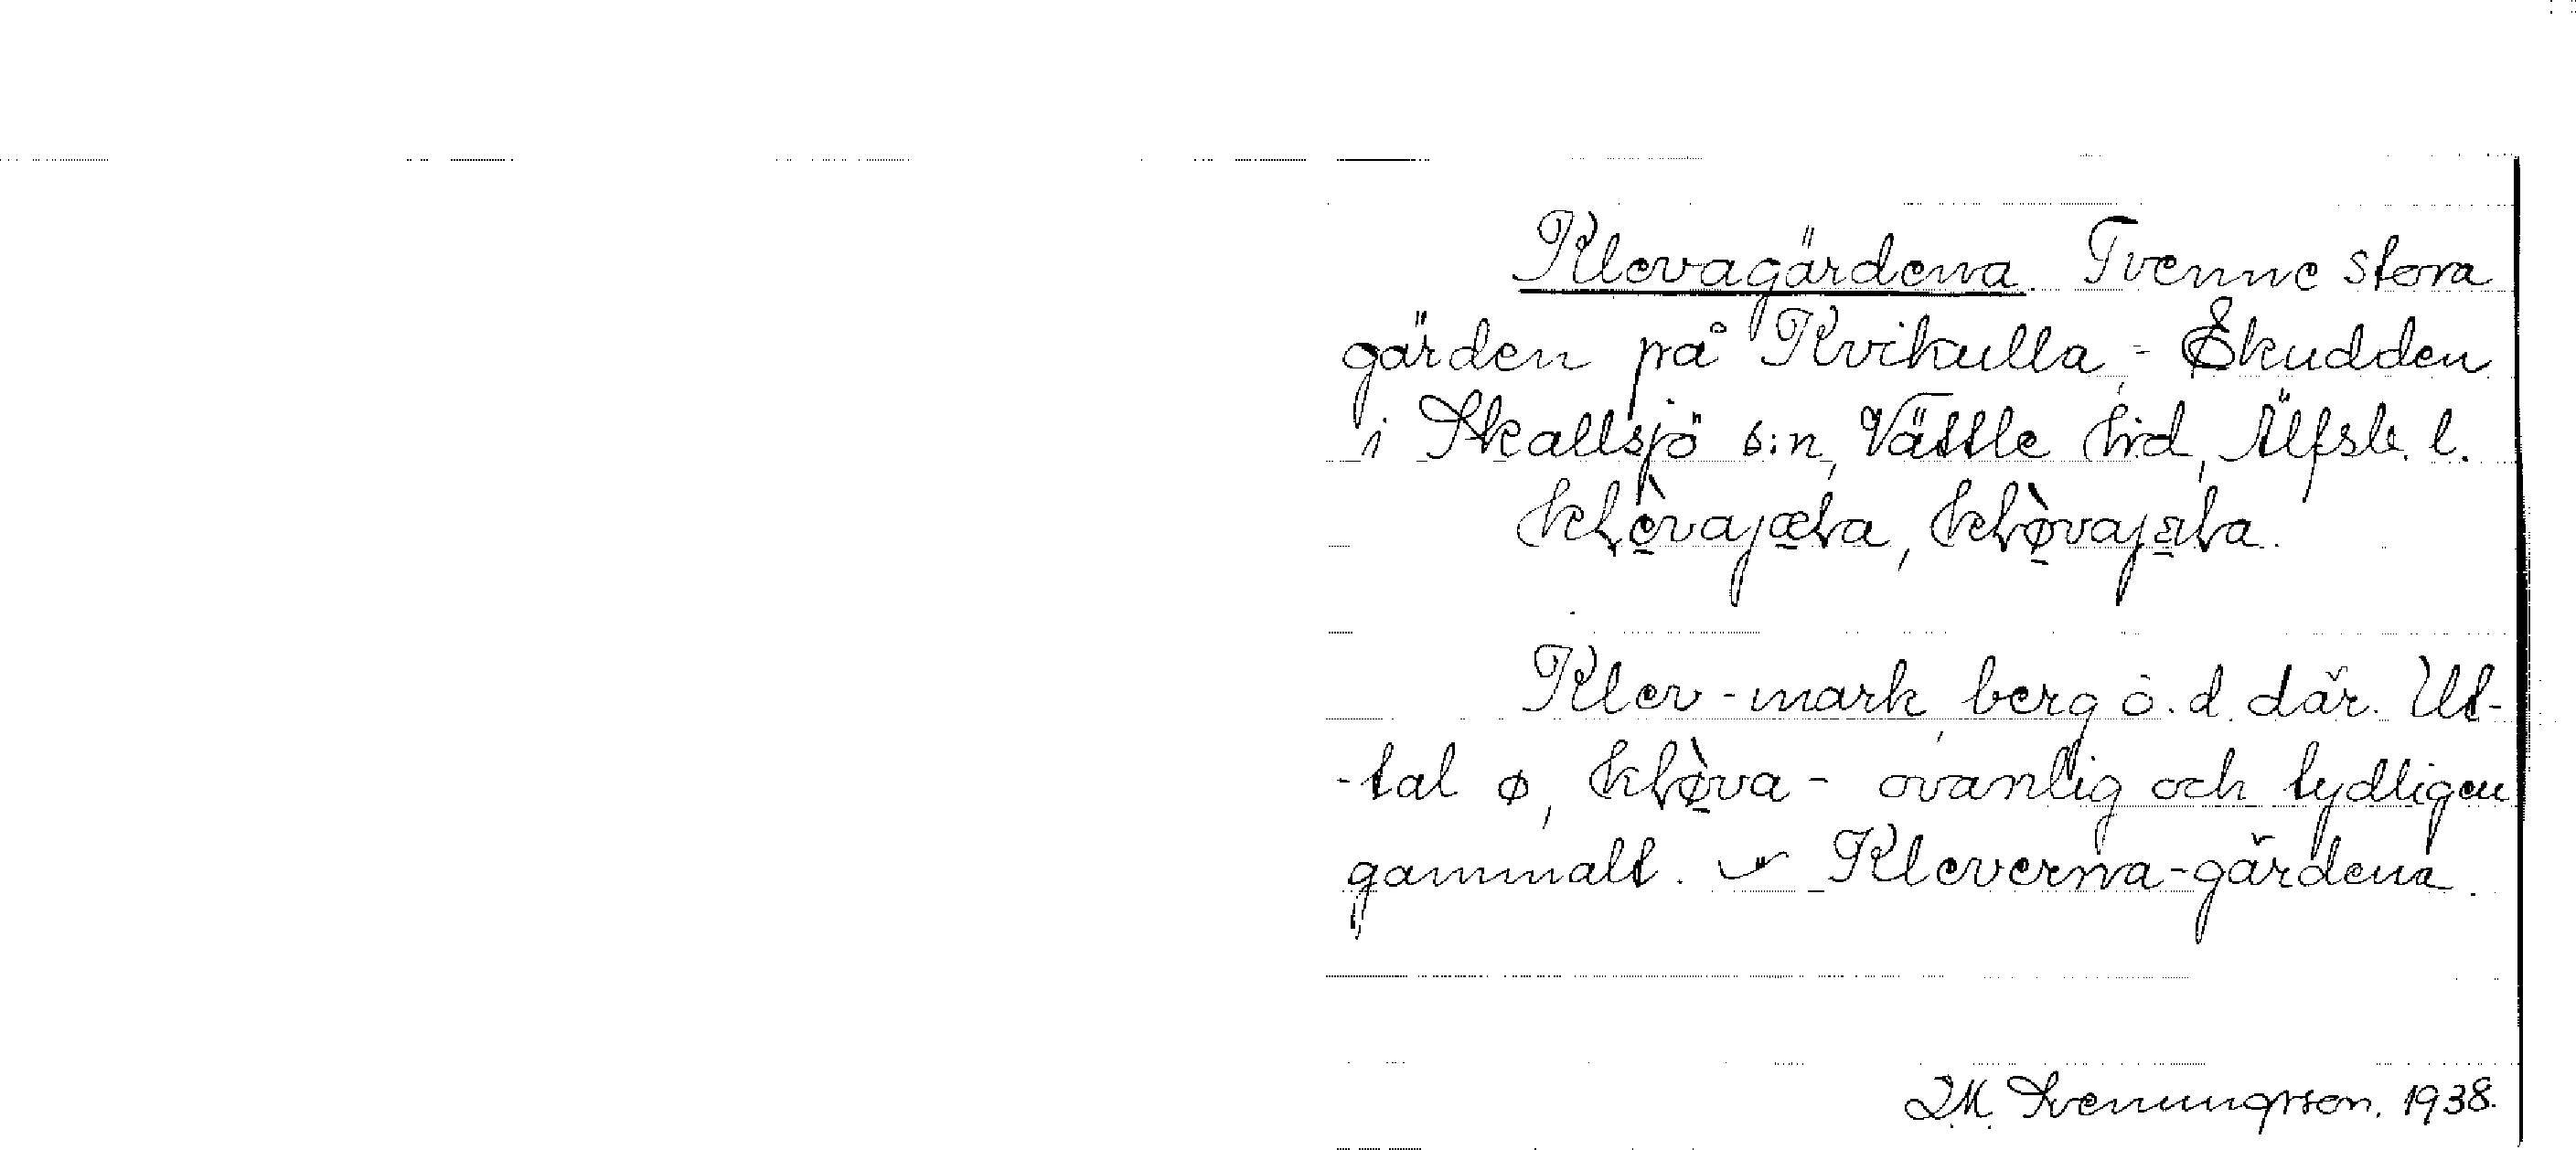 Klevagärdena. Tvenne stora
gärden på Kvikulla, - Ekudden
i Skallsjö s:n, Vättle hd, Älfsb. l.
Klev-mark, berg ö. d. där. Ut-
-tal ø, - ovanlig och tydligen
gammalt. Kleverna-gärdena.
I.M. Svenungsson. 1938.